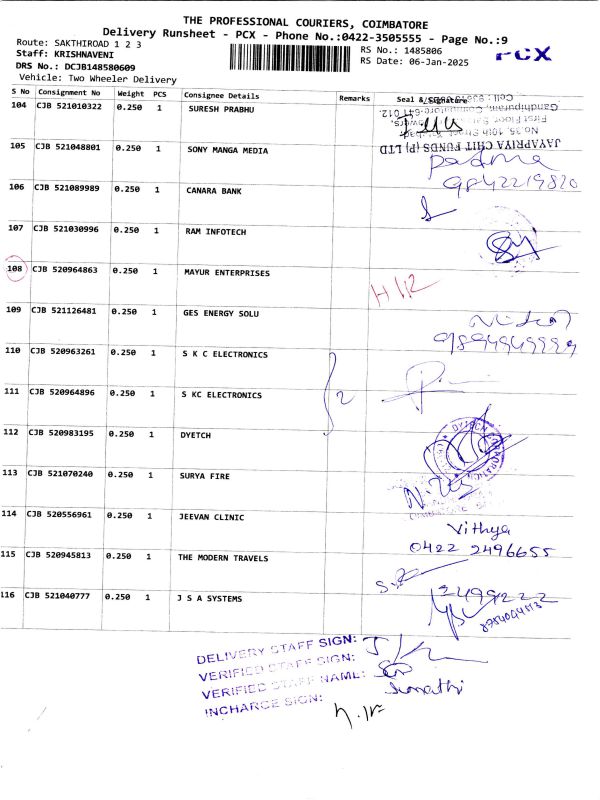 THE PROFESSIONAL COURIERS, COIMBATORE
Delivery Runsheet - PCX - Phone No.:0422-3505555 - Page No.:9
Route: SAKTHIROAD 1 2 3
RS No.: 1485806
PCX
Staff: KRISHNAVENI
RS Date: 06-Jan-2025
DRS No.: DCJB148580609
Vehicle: Two Wheeler Delivery
S No Consignment No Weight PCS Consignee Details Remarks Seal & Signature
104 CJB 521010322 0.250 1 SURESH PRABHU
JAYAPRIYA CHIT FUNDS (P) LTD
105 CJB 521048801 0.250 1 SONY MANGA MEDIA
padma
9842219820
106 CJB 521089989 0.250 1 CANARA BANK
107 CJB 521030996 0.250 1 RAM INFOTECH
108 CJB 520964863 0.250 1 MAYUR ENTERPRISES
109 CJB 521126481 0.250 1 GES ENERGY SOLU
110 CJB 520963261 0.250 1 S K C ELECTRONICS
2
111 CJB 520964896 0.250 1 S KC ELECTRONICS
112 CJB 520983195 0.250 1 DYETCH
113 CJB 521070240 0.250 1 SURYA FIRE
114 CJB 520556961 0.250 1 JEEVAN CLINIC
Vithya
0422 2496655
115 CJB 520945813 0.250 1 THE MODERN TRAVELS
116 CJB 521040777 0.250 1 J S A SYSTEMS
2499222
DELIVERY STAFF SIGN:
VERIFIED STAFF SIGN:
VERIFIED STAFF NAME: Sumathi
INCHARGE SIGN: